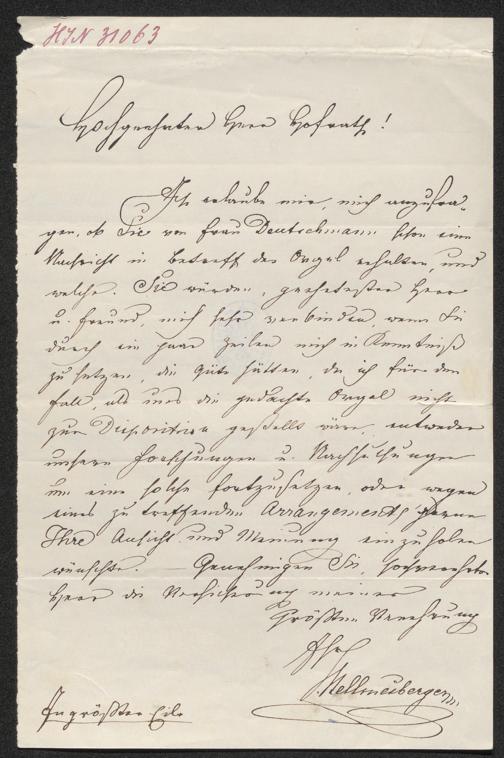 HIN 31063
Hochgeehrter Herr Hofrath!
Ich erlaube mir, mich anzufra-
gen, ob Sie von Frau Deutschmann schon eine
Nachricht in betreff der Orgel erhalten, und
welche. Sie würden, geehrtester Herr
u. Freund, mich sehr verbinden, wenn Sie
durch ein paar Zeilen mich in Kenntniß
zu setzen, die Güte hätten, da ich für den
Fall, als uns die gedachte Orgel nicht
zur Disposition gestellt wäre, entweder
unsere Forschungen u. Nachsuchungen
um eine solche fortzusetzen, oder wegen
eines zu treffenden Arrangements gerne
Ihre Ansicht und Meinung einzuholen
wünschte. – Genehmigen Sie, hochverehrter
Herr die Versicherung meiner
größten Verehrung
Ihr
Hellmesbergerm
In größter Eile